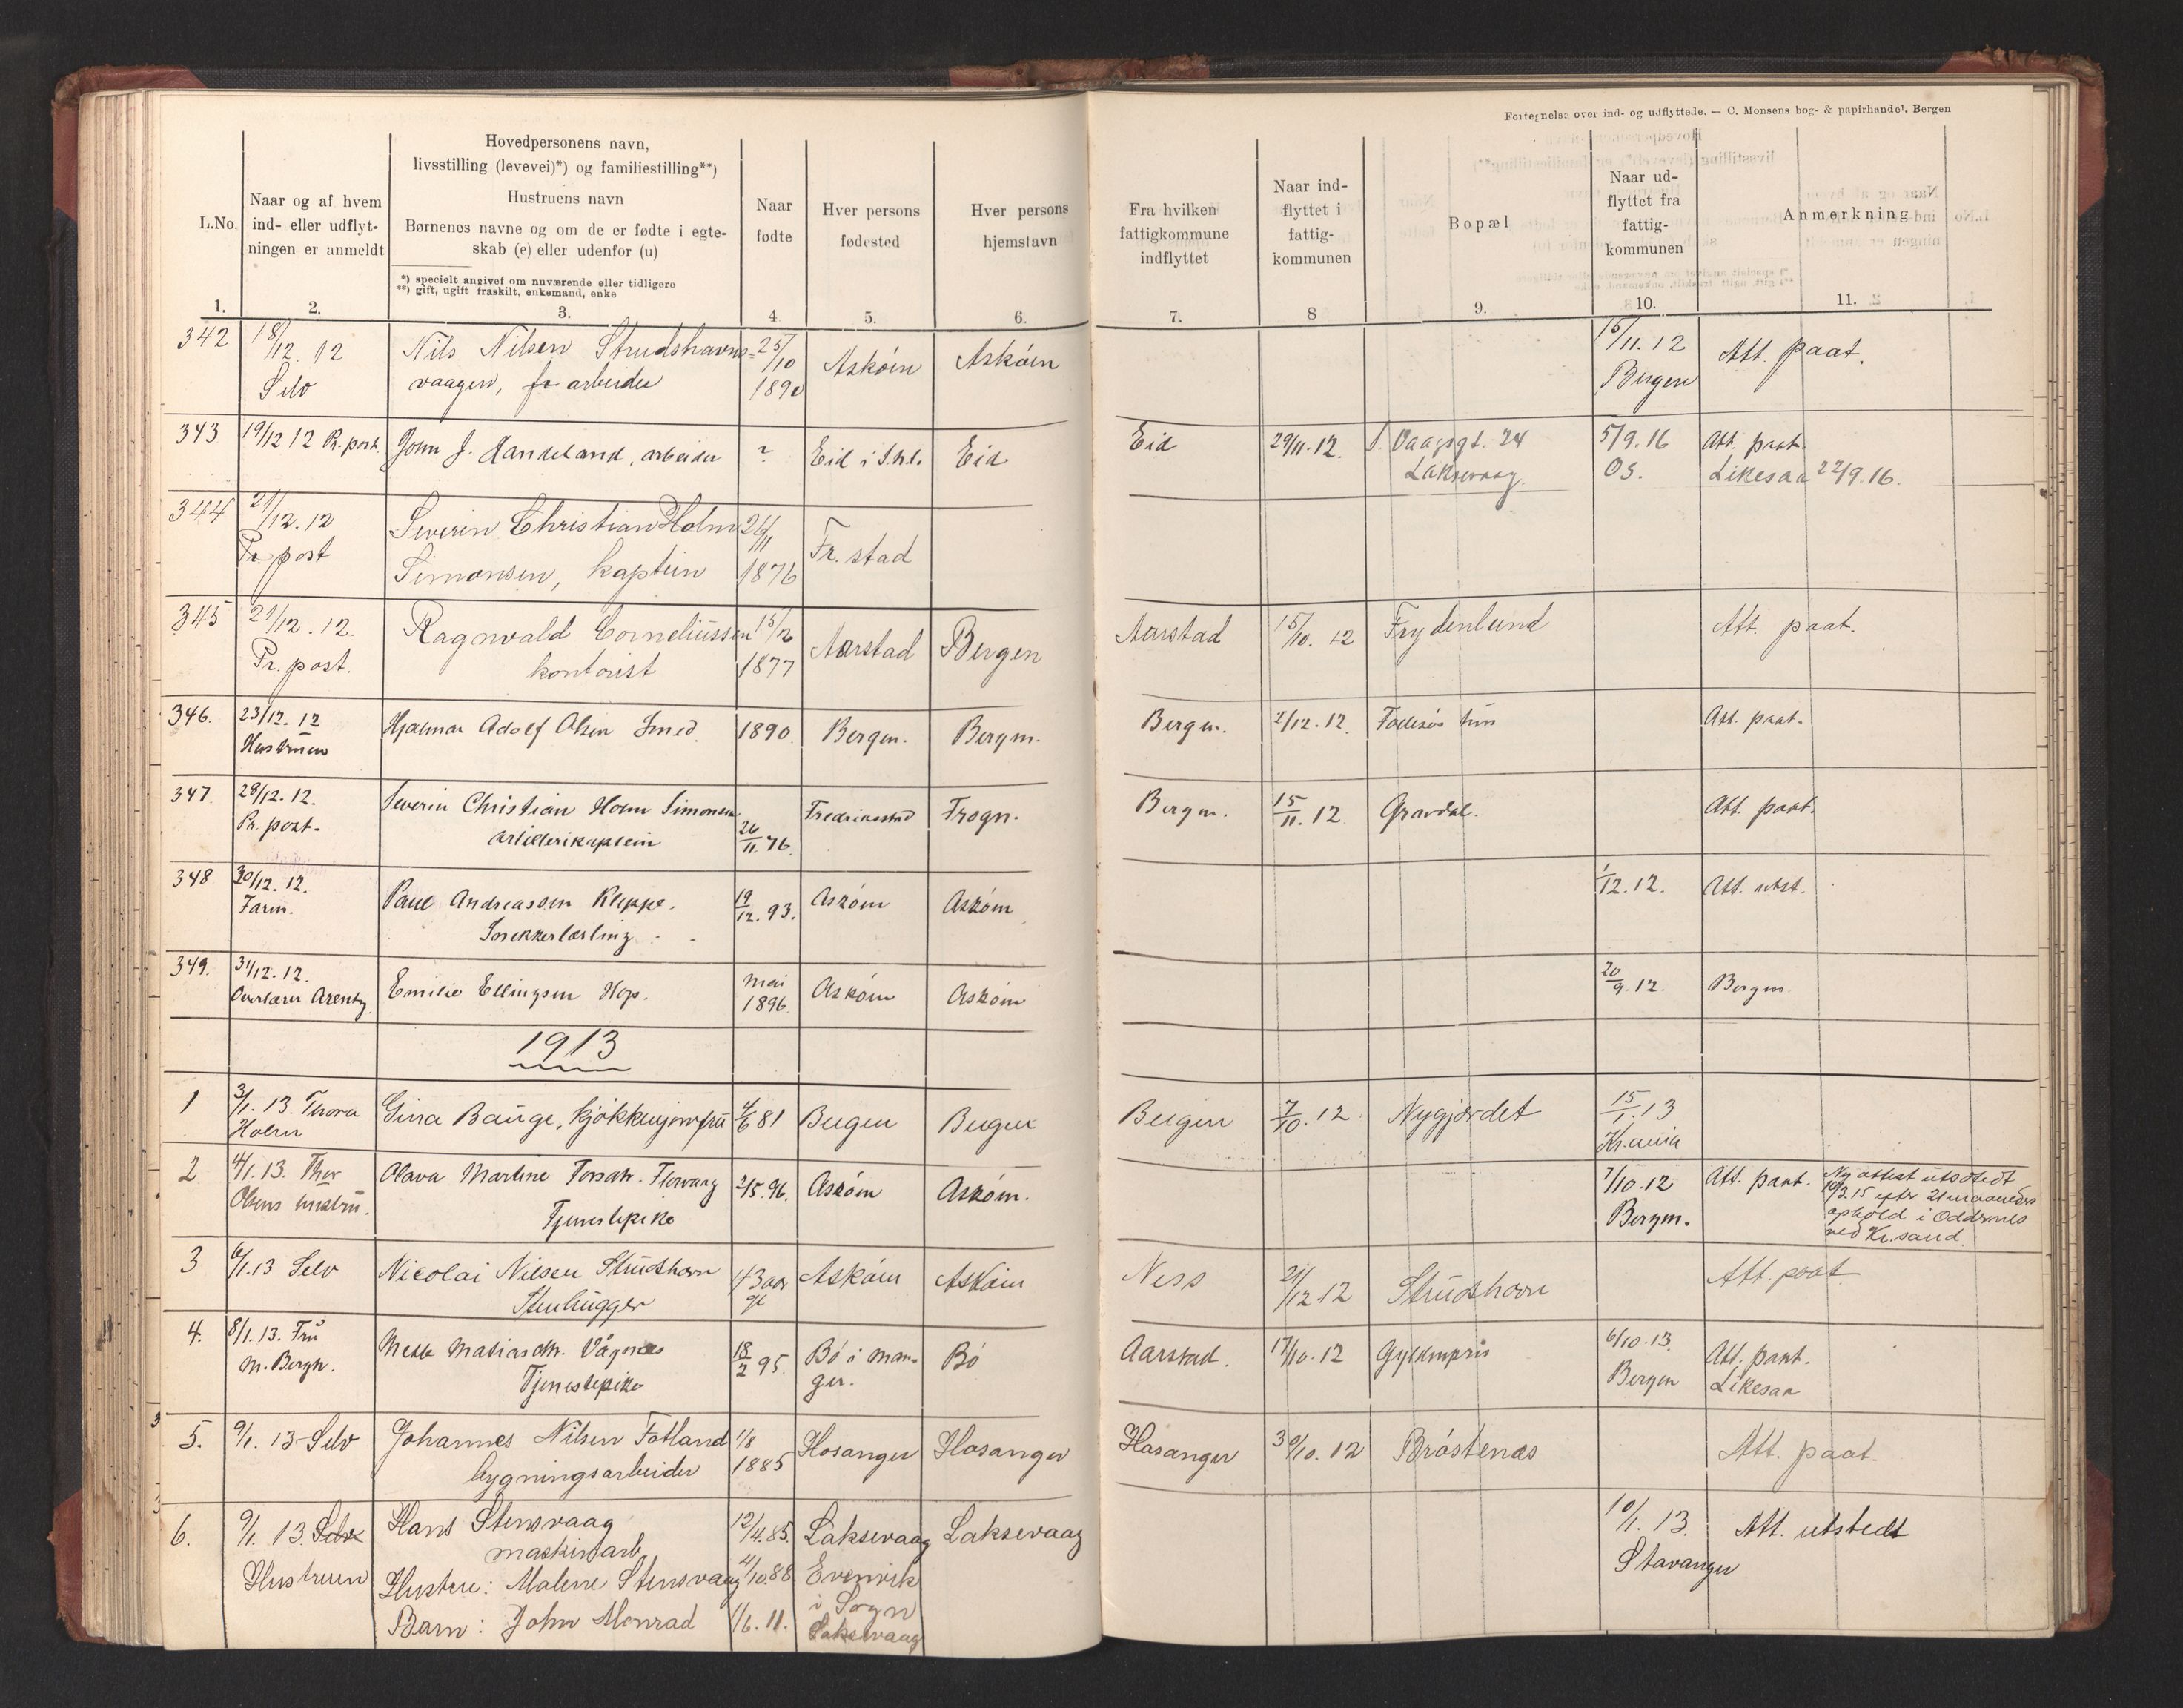 Fortegnelse over ind- og udflyttede. — C. Monsens bog- & papirhandel. Bergen
L.No.
Naar og af hvem ind- eller udflyt-ningen er anmeldt
Hovedpersonens navn,
livsstilling (levevei)*) og familiestilling**)
Hustruens navn
Børnenes navne og om de er fødte i egte-
skab (e) eller udenfor (u)
*) specielt angivet om nuværende eller tidligere
**) gift, ugift fraskilt, enkemand, enke
Naar fødte
Hver persons fødested
Hver persons hjemstavn
Fra hvilken fattigkommune indflyttet
Naar ind-flyttet i fattig-kommunen
Bopæl
Naar ud-flyttet fra fattig-kommunen
Anmerkning
1. 2. 3. 4 5. 6. 7. 8 9. 10. 11.
342 18/12. 12 Nils Nilsen Strudshavns- 25/10 Askøin Askøin 15/11. 12 Att. paat.
Selv vaagen, arbeider 1890 Bergen
343 19/12 12 Pr. post. John J. Handeland, arbeider ? Eid i S.h.l. Eid Eid 29/11. 12. Vaagsgt. 24 5/9. 16 Att. paat.
Laksevaag Os. Likesaa 22/9. 16.
344 21/12. 12 Severin Christian Holm 26/11 Fr. stad
Pr. post Simonsen, kaptein 1876
345 21/12. 12. Ragnvald Corneliussen 15/2 Aarstad Bergen Aarstad 15/10. 12 Frydenlund Att. paat.
Pr. post. kontorist 1877
346. 23/12. 12 Hjalmar Adolf Olsen Smed. 1890. Bergen. Bergen. Bergen. 2/12. 12. Att. paat.
Hustruen
347. 28/12. 12. Severin Christian Holm Simonsen Fredrikstad Frogn. Bergen. 15/11. 12 Gravdal. Att. paat.
Pr. post. artillerikaptein 26/11. 76.
348 30/12. 12. Paul Andreassen Kleppe. 19/12. 93. Askøin Askøin 1/12. 12. Att. utst.
Faren. Snekkerlærling
349. 31/12. 12. Emilie Ellingsen Hop. Mai Askøin Askøin 20/9. 12. Bergen
Overlærer Arentz 1896.
1913
1 3/1. 13. Thora Gina Bauge, kjøkkenjomfru 4/6 81 Bergen Bergen Bergen 7/10. 12 Nygjærdet 15/1. 13
Holm Kr.ania
2 4/1. 13. Thor Olava Martine Torsdtr. Florvaag 2/5. 96. Askøin Askøin. 7/10. 12 Att. paat. Ny attest utstedt
Olsens hustru. Tjenestepike Bergen. 10/3. 15 efter 21 maaneders
ophold i Oddernes
ved Kr.sand.
3 6/1. 13 Selv Nicolai Nilsen Strudshavn 43 aar Askøin Askøin Ness 21/12 12 Strudshavn Att. paat
Stenhugger gl
4. 8/1. 13. Fru Mette Matiasdtr. Vågenes 18/2 95. Bø i Man- Bø Aarstad. 17/10. 12 Gyldenpris 6/10. 13. Att. paat.
M. Bergh. Tjenestepike ger. Bergen Likesaa
5. 9/1. 13 Selv Johannes Nilsen Fotland 1/8 Hosanger Hosanger Hosanger 30/10. 12 Brøstenes Att. paat.
bygningsarbeider 1885
6. 9/1. 13. Selv Hans Stensvaag 12/4. 85. Laksevaag Laksevaag 10/1. 13. Att. utstedt
maskinarb.
Hustruen Hustru: Malene Stensvaag 4/10. 88 Evenvik Stavanger
i Sogn
Barn: John Monrad 1/6. 11. Laksevaag